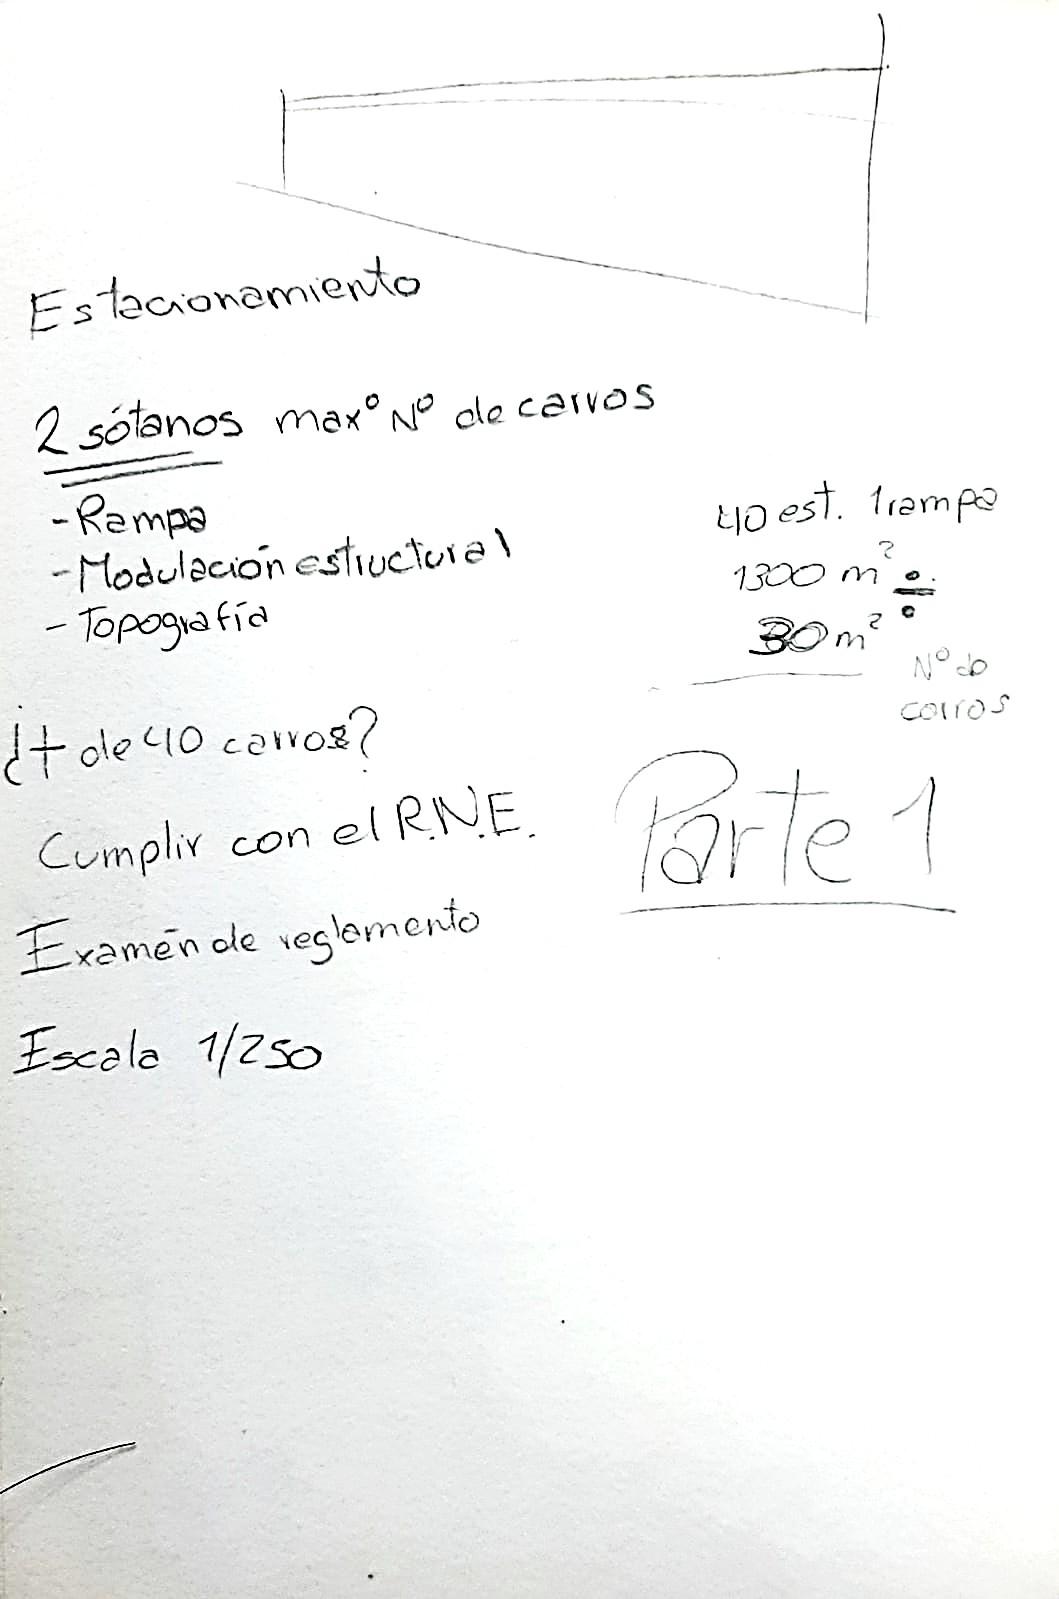 Estacionamiento
2 sótanos max° N° de carros
- Rampa
- Modulación estructural
- Topografía
40 est. 1 rampa
1300 m² ÷
30 m²
N° de
carros
¿+ de 40 carros?
Cumplir con el R.N.E.
Parte 1
Examen de reglamento
Escala 1/250